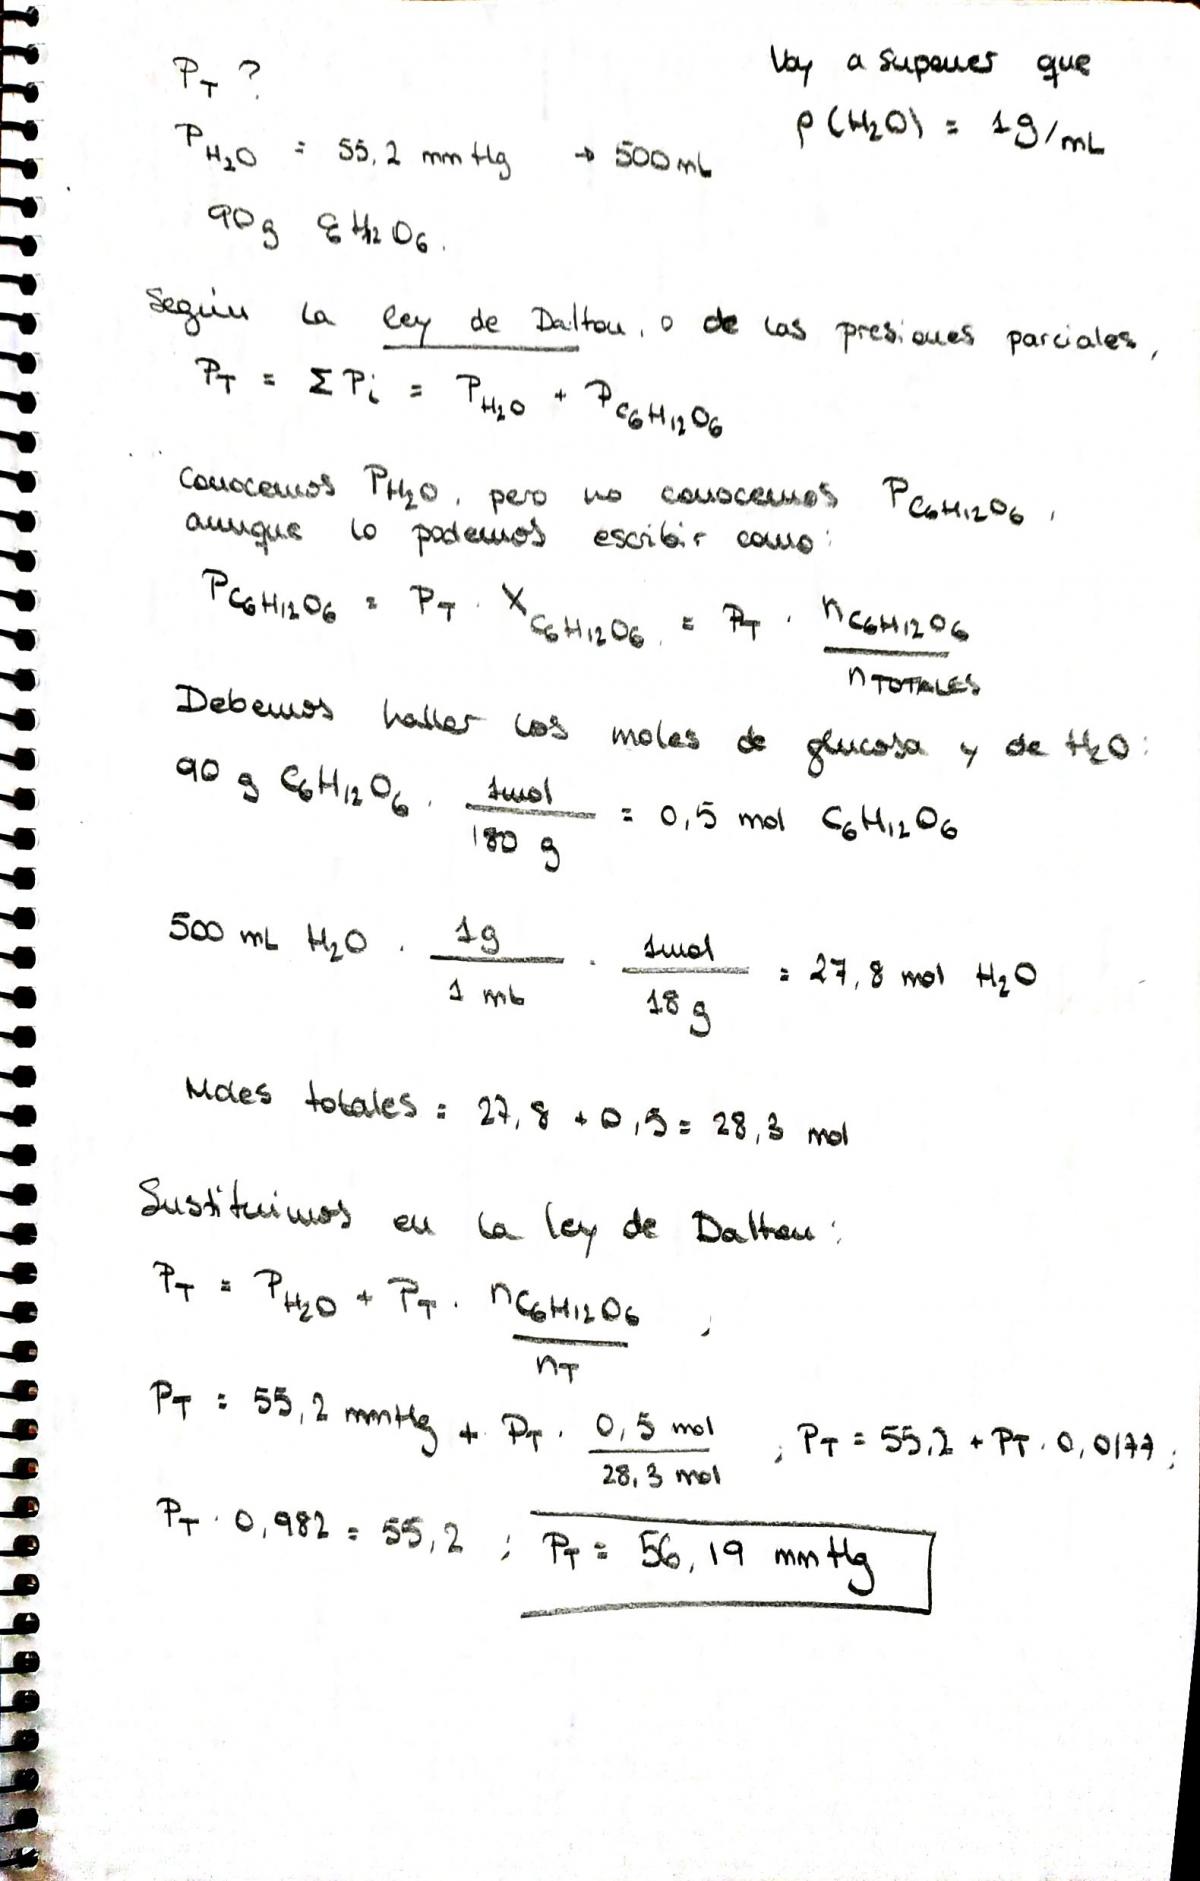 P_T ?
Voy a suponer que
ρ (H₂O) = 1g/mL
P_H₂O = 55,2 mmHg → 500 mL
90 g C₆H₁₂O₆.
Según la ley de Dalton, o de las presiones parciales,
P_T = Σ P_i = P_H₂O + P_C₆H₁₂O₆
Conocemos P_H₂O, pero no conocemos P_C₆H₁₂O₆,
aunque lo podemos escribir como:
P_C₆H₁₂O₆ = P_T · X_C₆H₁₂O₆ = P_T · n_C₆H₁₂O₆ / n_TOTALES
Debemos hallar los moles de glucosa y de H₂O:
90 g C₆H₁₂O₆ · 1mol / 180 g = 0,5 mol C₆H₁₂O₆
500 mL H₂O · 1g / 1 mL · 1mol / 18 g = 27,8 mol H₂O
Moles totales = 27,8 + 0,5 = 28,3 mol
Sustituimos en la ley de Dalton:
P_T = P_H₂O + P_T · n_C₆H₁₂O₆ / n_T ;
P_T = 55,2 mmHg + P_T · 0,5 mol / 28,3 mol ; P_T = 55,2 + P_T · 0,0177 ;
P_T · 0,982 = 55,2 ; P_T = 56,19 mmHg